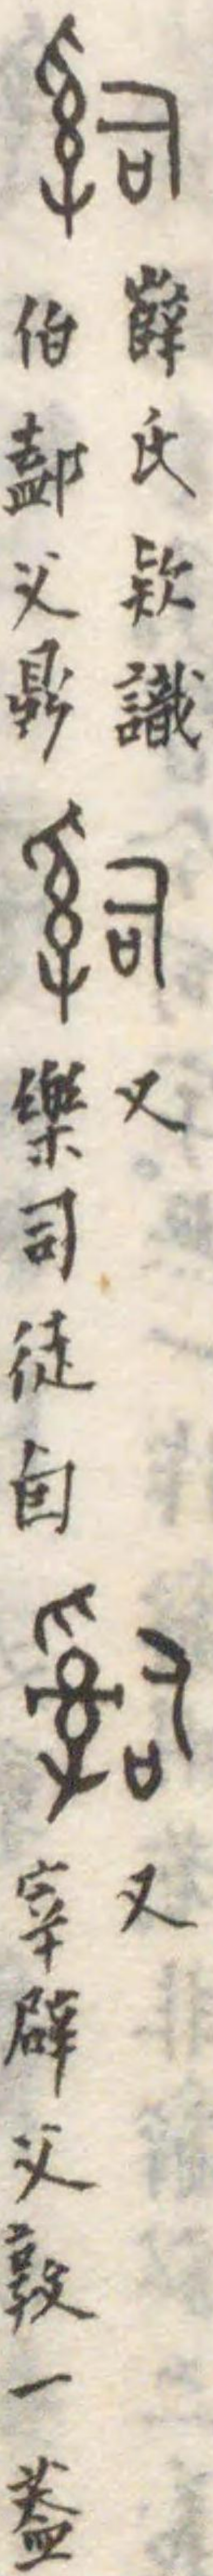 薛氏欵識
伯父鼎
又
樂司徒卣
又
宰辟父敦一蓋